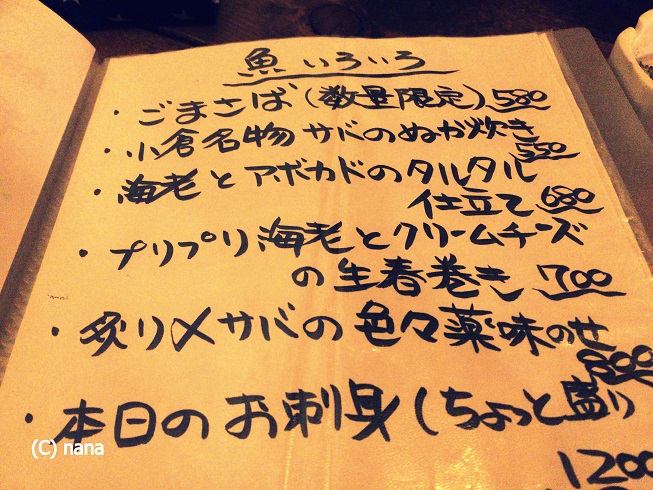 魚いろいろ
・ごまさば(数量限定) 580
・小倉名物サバのぬか炊き
550
・海老とアボカドのタルタル
仕立て 680
・プリプリ海老とクリームチーズ
の生春巻き 700
・炙り〆サバの色々薬味のせ
800
・本日のお刺身(ちょっと盛り
1200
(C) nana